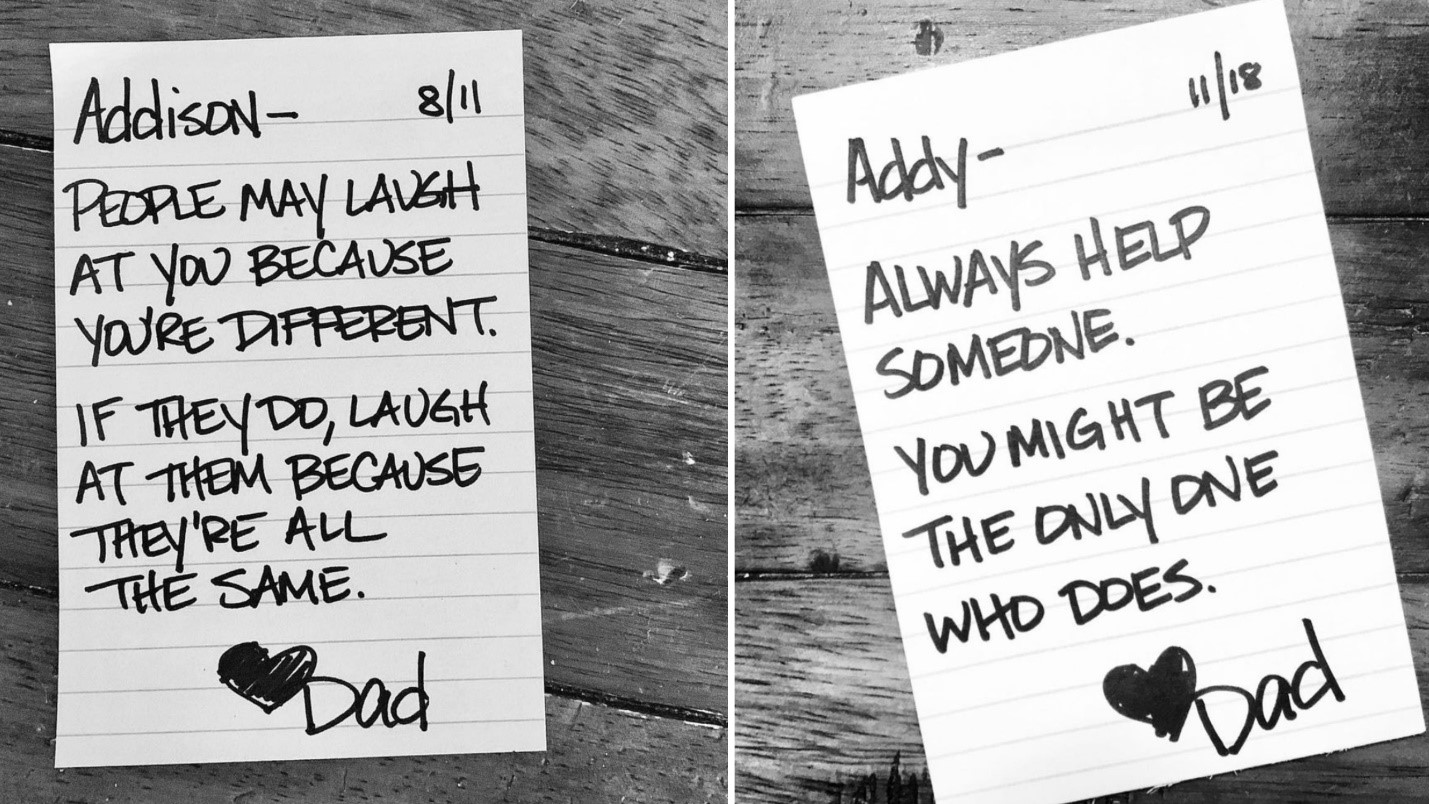 Addison— 8/11
PEOPLE MAY LAUGH
AT YOU BECAUSE
YOU'RE DIFFERENT.
IF THEY DO, LAUGH
AT THEM BECAUSE
THEY'RE ALL
THE SAME.
Dad
11/18
Addy-
ALWAYS HELP
SOMEONE.
YOU MIGHT BE
THE ONLY ONE
WHO DOES.
Dad